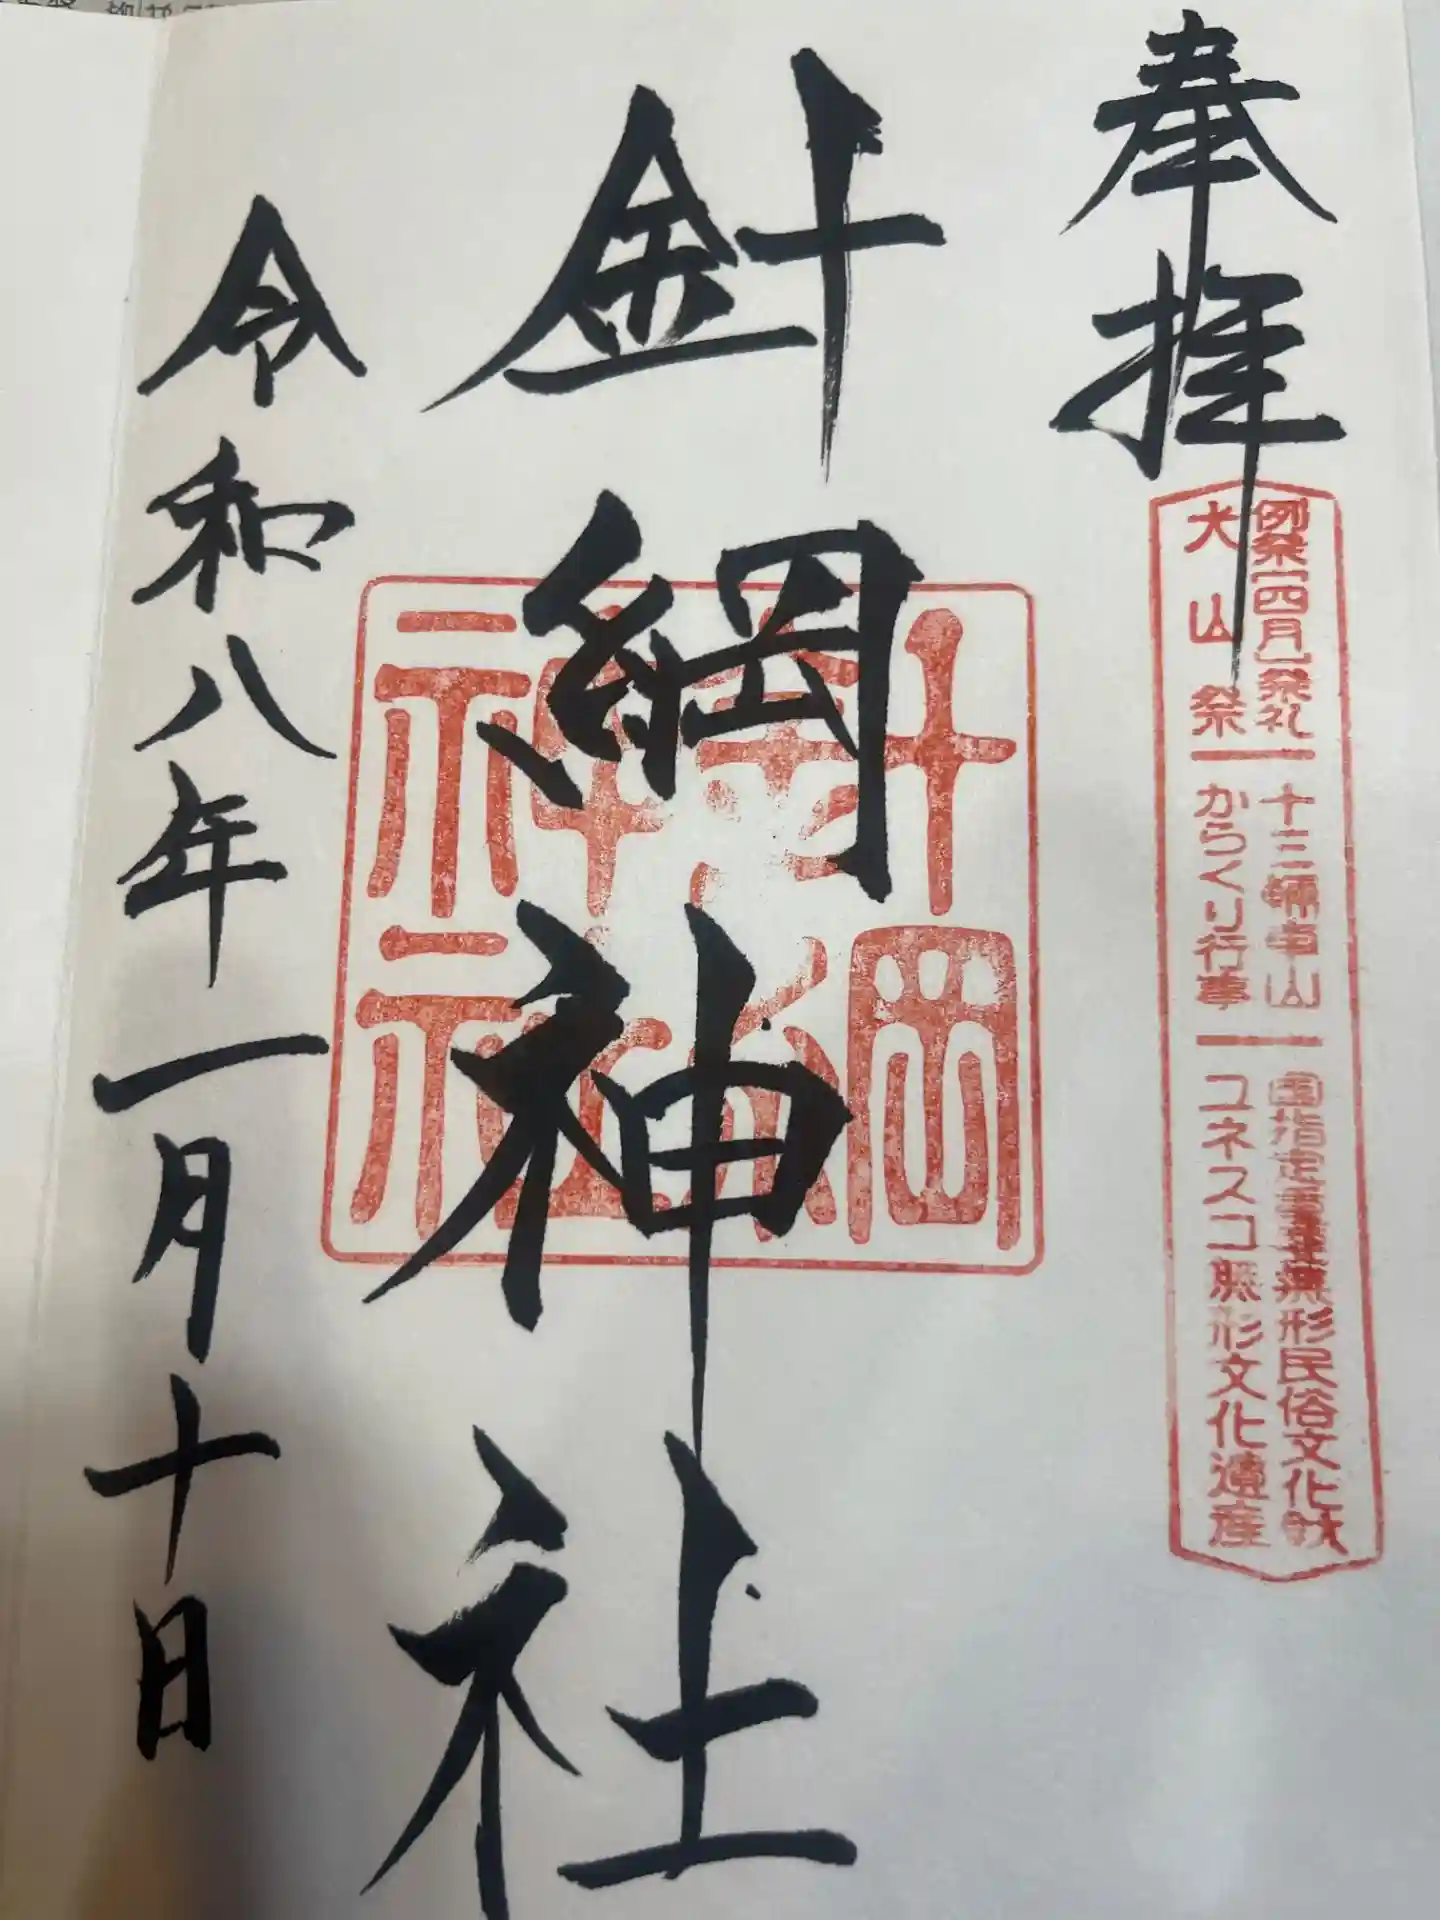 奉拝
例祭(四月)祭礼 十三輌車山 国指定重要無形民俗文化財
犬山祭 からくり行事 ユネスコ無形文化遺産
針綱神社
針綱
神社
令和八年一月十日